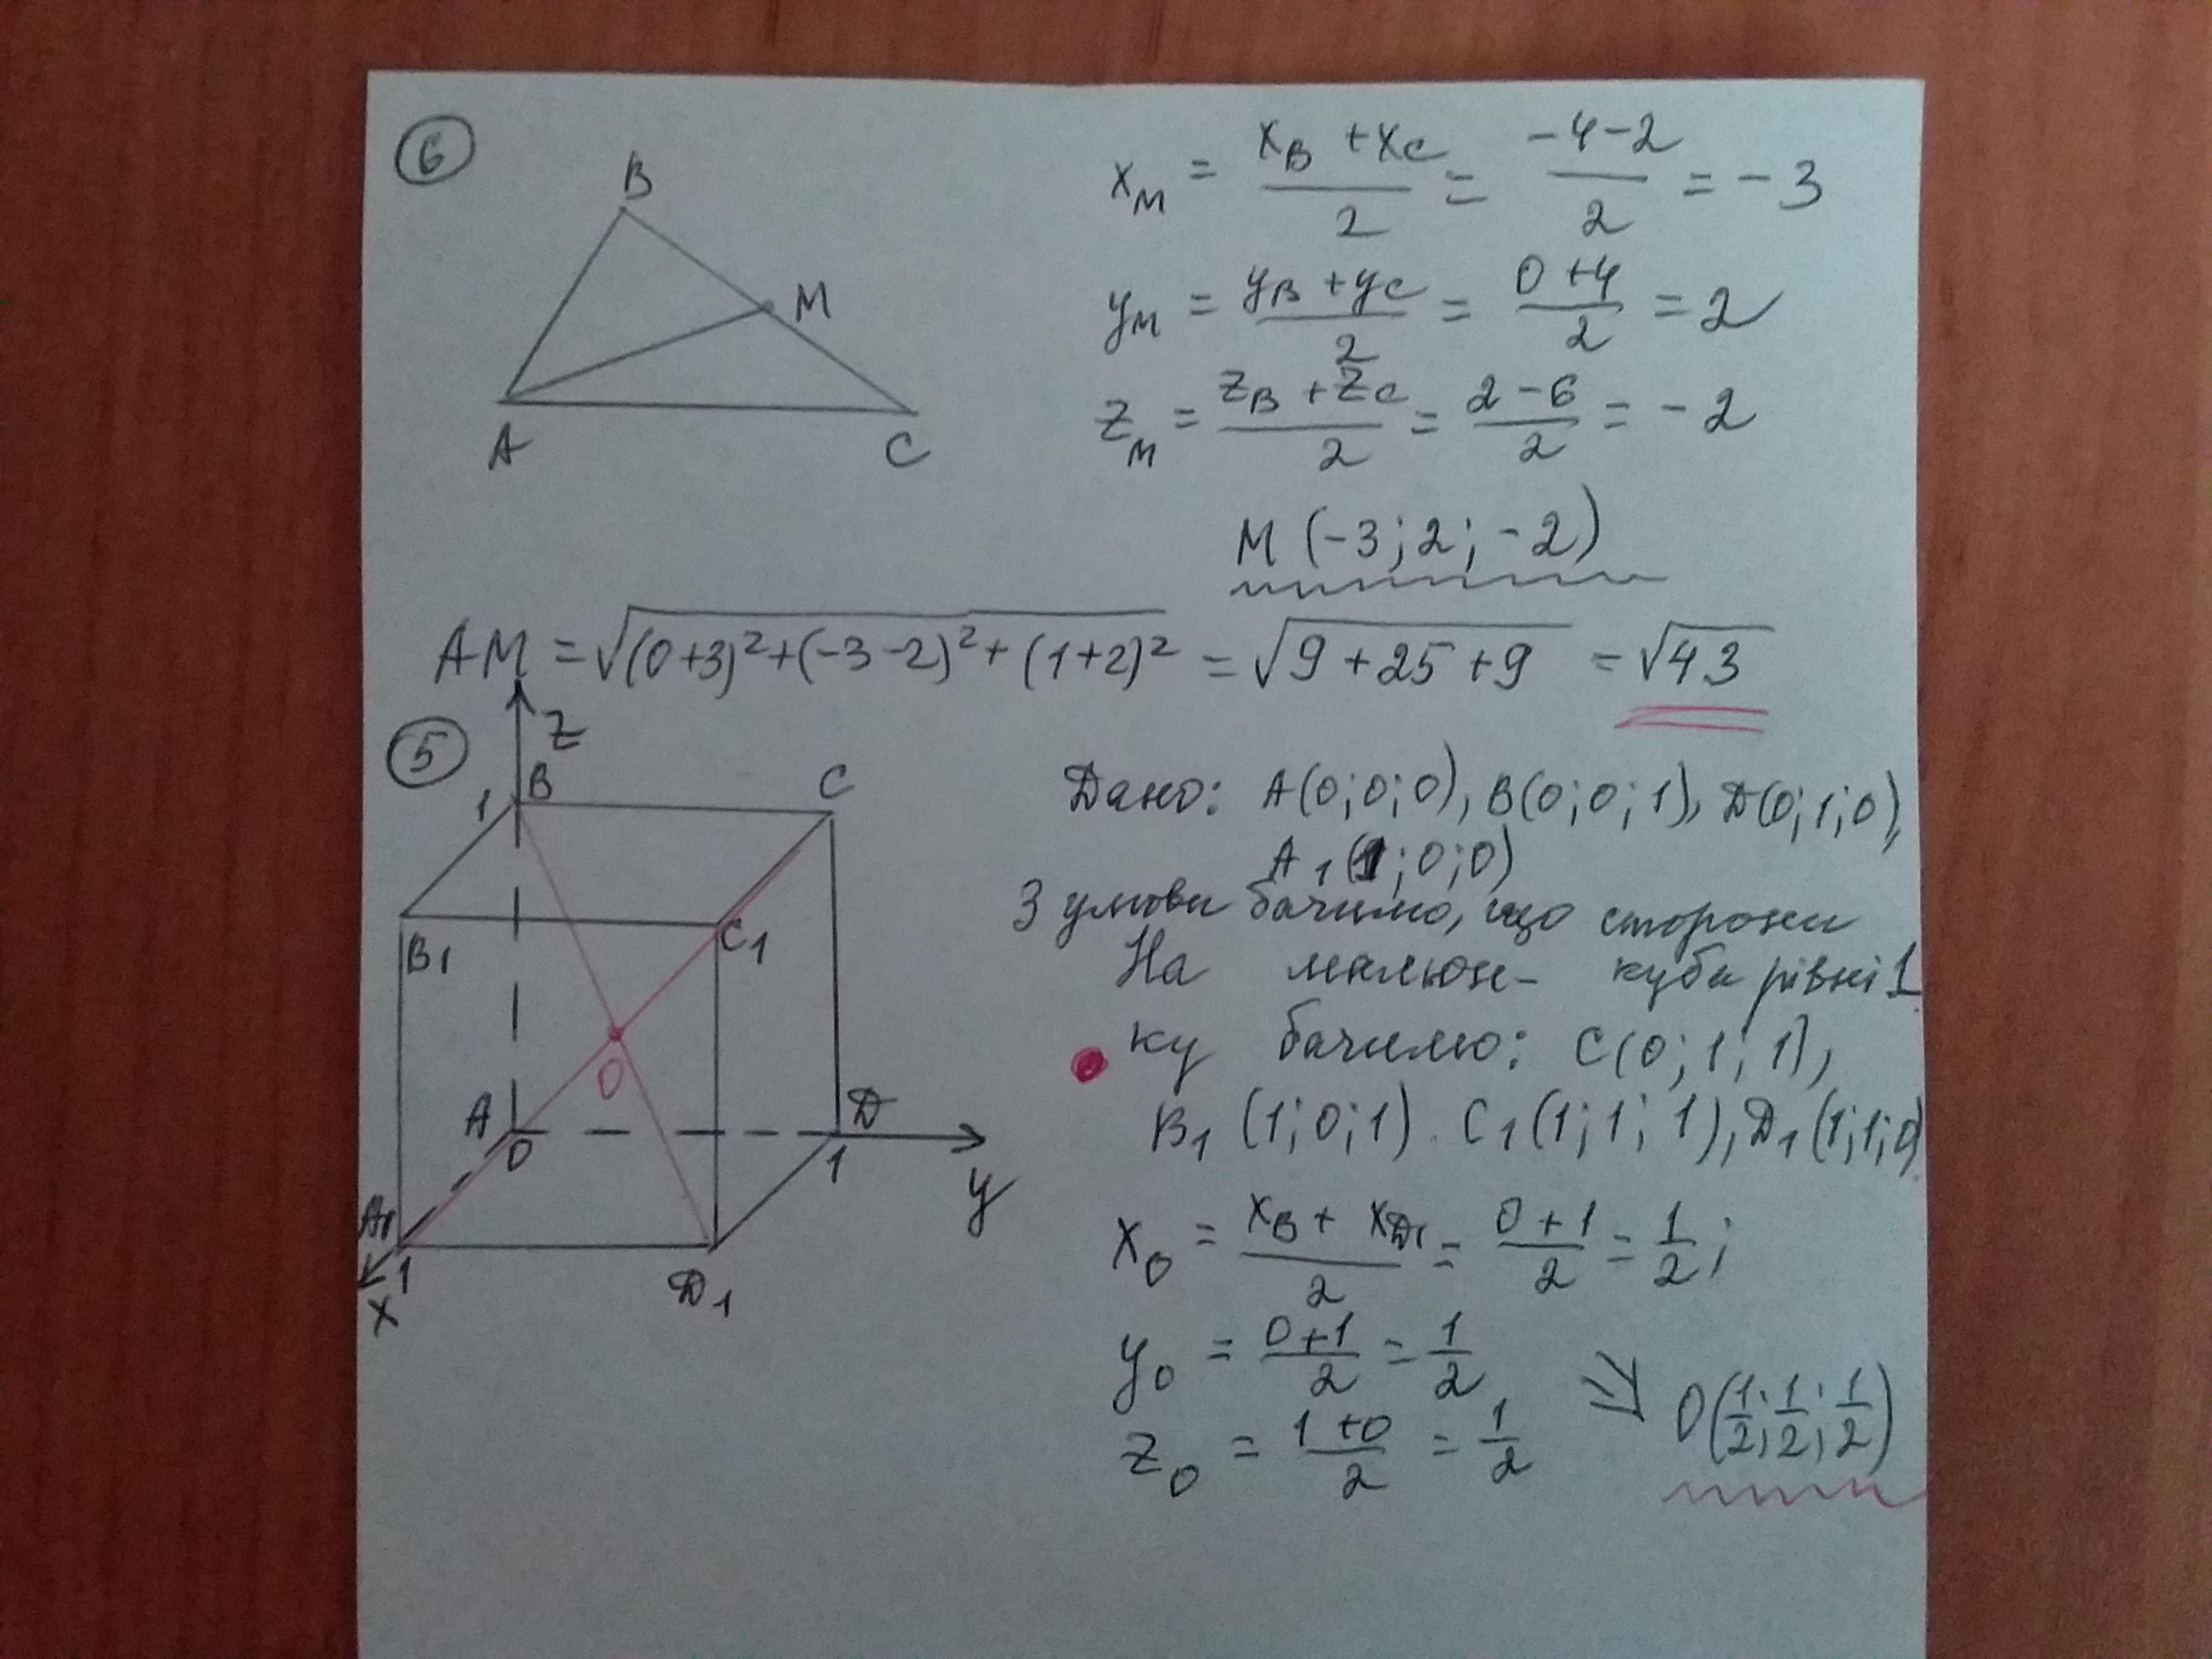 6
B
M
A
C
x_M = (x_B + x_C)/2 = (-4-2)/2 = -3
y_M = (y_B + y_C)/2 = (0+4)/2 = 2
z_M = (z_B + z_C)/2 = (2-6)/2 = -2
M (-3; 2; -2)
AM = √((0+3)²+(-3-2)²+(1+2)²) = √(9+25+9) = √43
5
z
1 B
C
B₁
C₁
O
A
0
D
1
y
A₁
1
x
D₁
Дано: A(0;0;0), B(0;0;1), D(0;1;0),
A₁(1;0;0)
З умови бачимо, що сторони
куба рівні 1
На малюн-
ку бачимо: C(0;1;1),
B₁(1;0;1). C₁(1;1;1), D₁(1;1;0)
x_O = (x_B + x_D₁)/2 = (0+1)/2 = 1/2;
y_O = (0+1)/2 = 1/2
z_O = (1+0)/2 = 1/2
⇒ O(1/2; 1/2; 1/2)